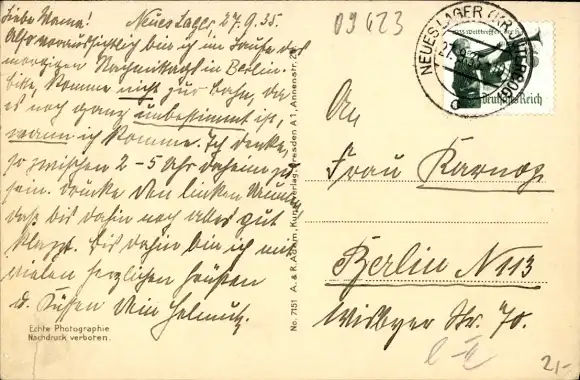 Liebe Mama! Neues Lager, 27.9.35.
Also voraussichtlich bin ich im Laufe des
morgigen Nachmittags in Berlin.
bitte, komme nicht zur Bahn, da
es noch ganz unbestimmt ist,
wann ich komme. Ich denke,
so zwischen 2-5 Uhr daheim zu
sein. Drücke den linken Daumen,
daß bis dahin noch alles gut
klappt. Bis dahin bin ich mit
vielen herzlichen Grüßen
u. Küssen Dein Helmut.
Echte Photographie
Nachdruck verboren.
No. 7151 A. & R. Adam, Kunstverlag, Dresden A 1, Annenstr.
09623
NEUES LAGER (KR. JÜTERBOG)
27.9.35
Deutsches Reich
An
Frau Karnop
Berlin N 113
Wisbyer Str. 70.
21,-